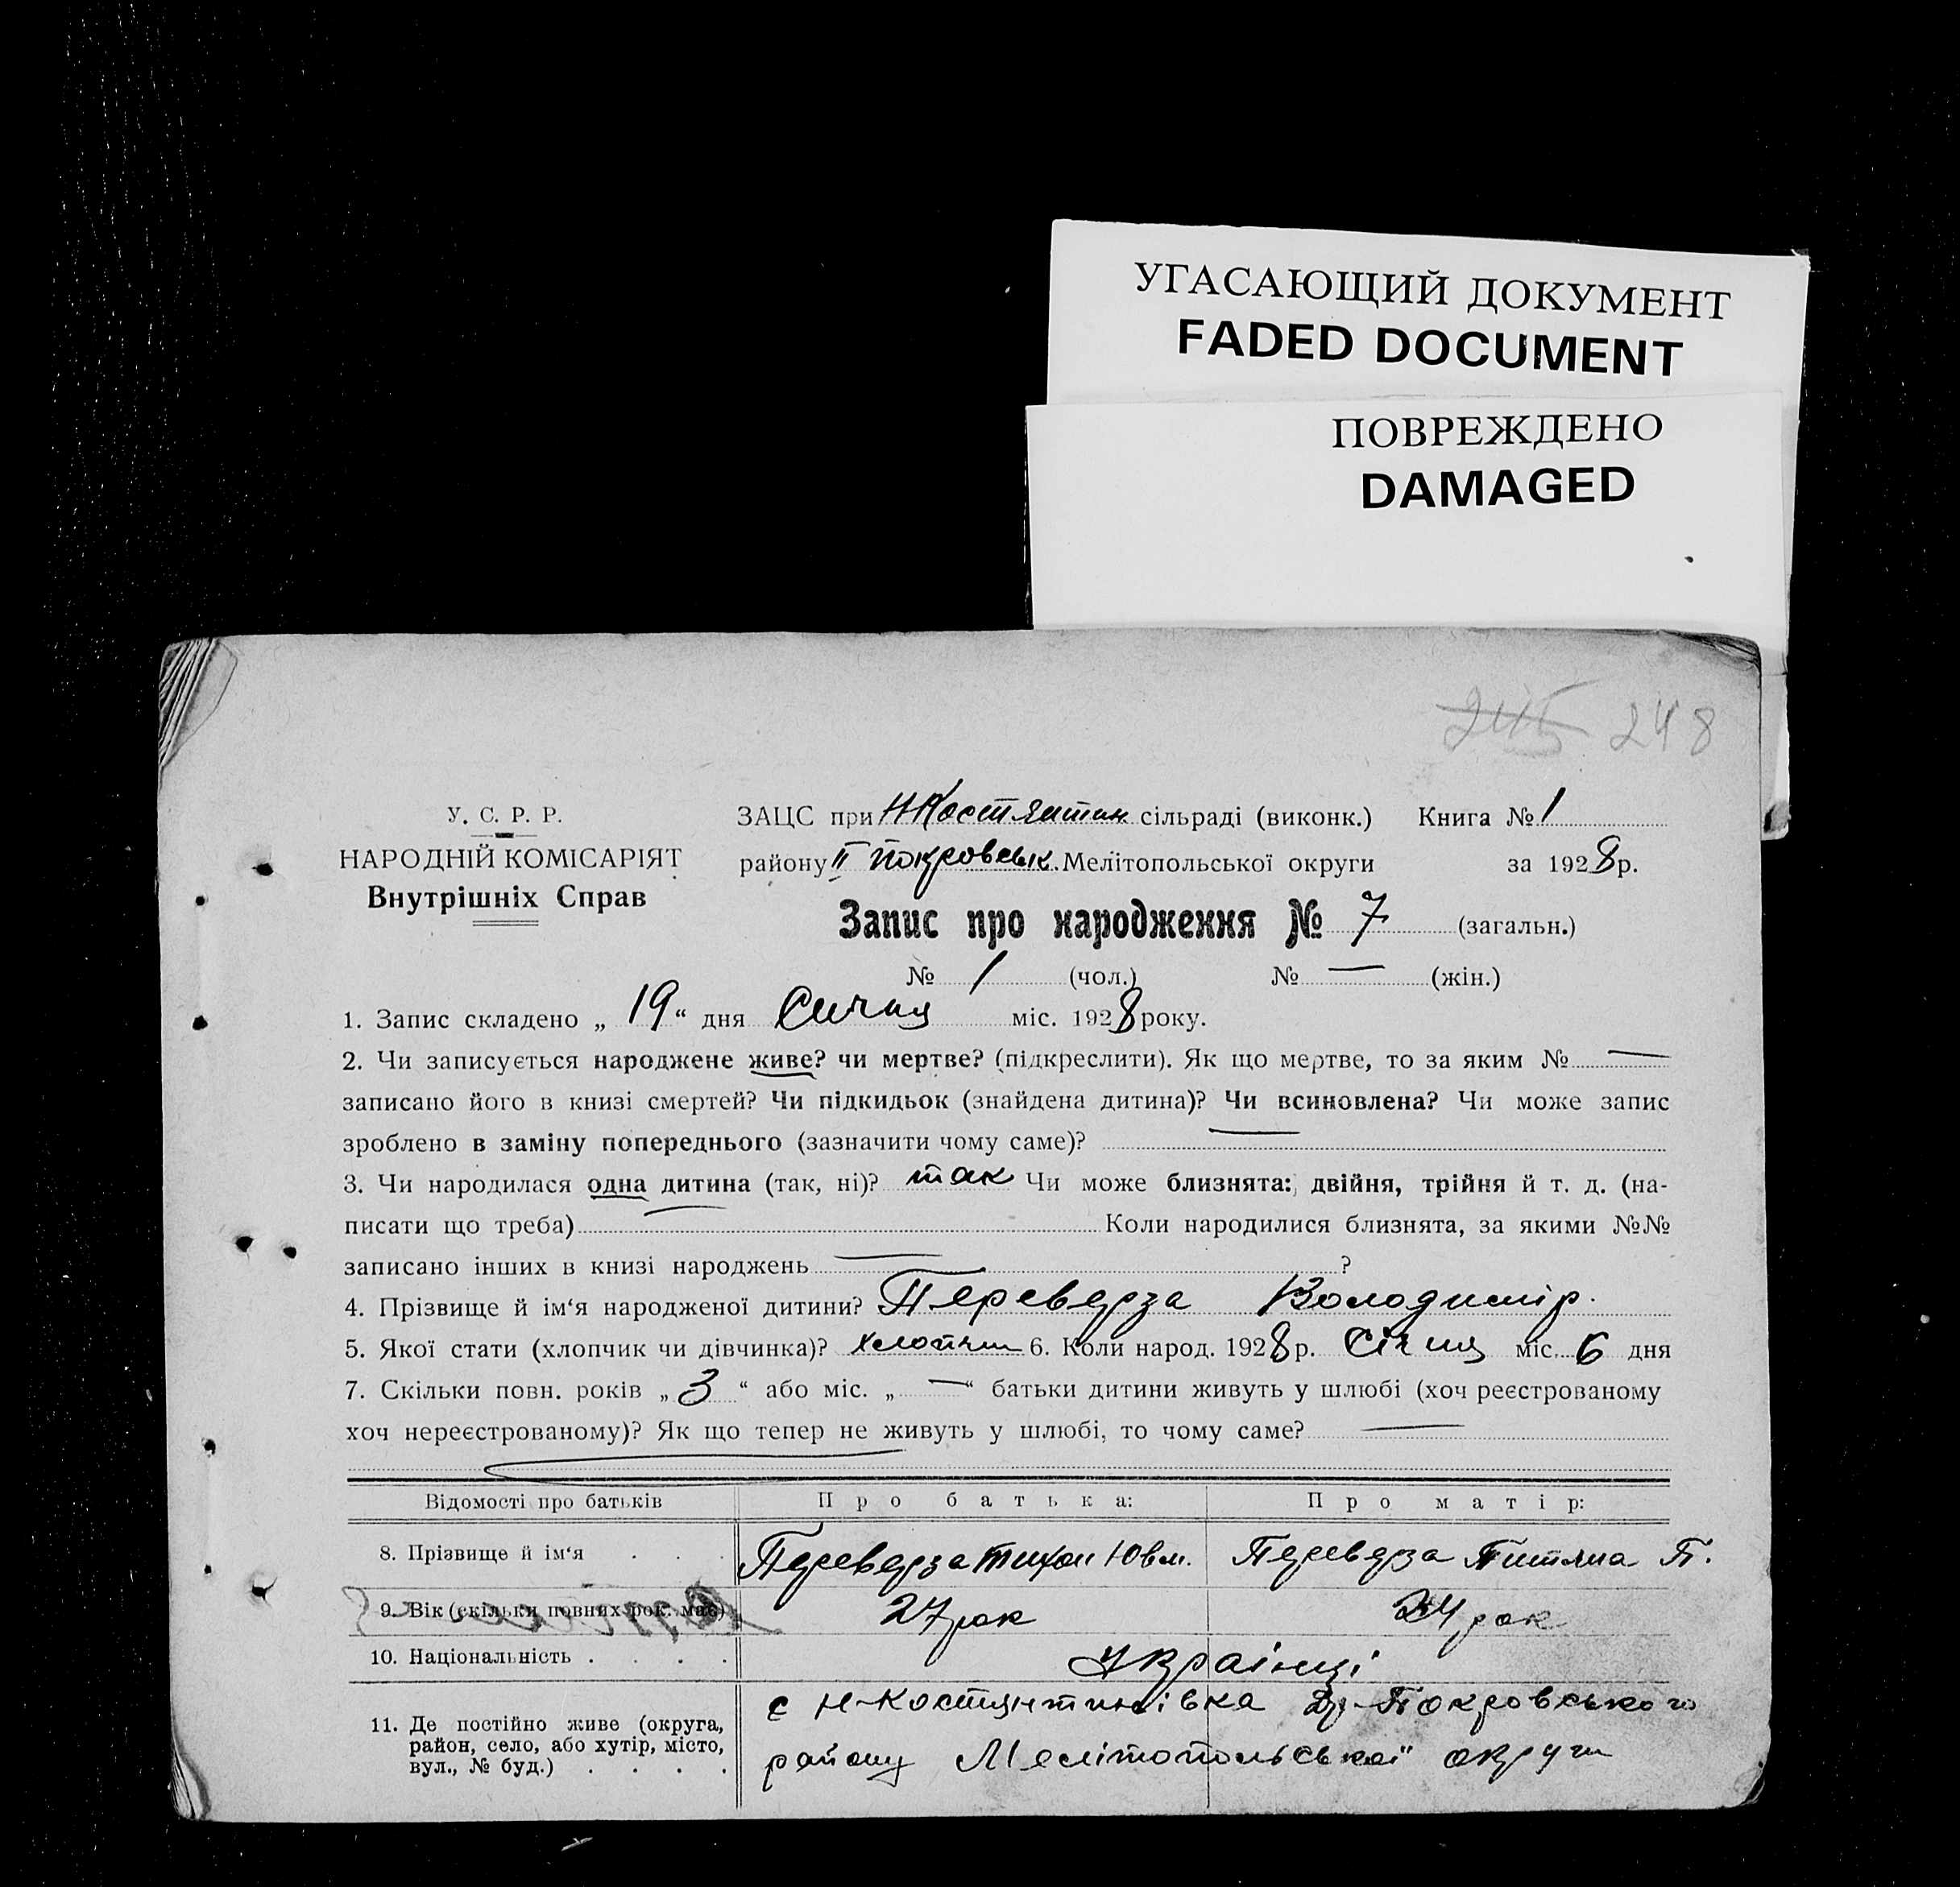 УГАСАЮЩИЙ ДОКУМЕНТ
FADED DOCUMENT
ПОВРЕЖДЕНО
DAMAGED
245 248
У. С. Р. Р.
НАРОДНІЙ КОМІСАРІЯТ
Внутрішніх Справ
ЗАЦС при Н Костянтин сільраді (виконк.) Книга № 1
району ІІ Покровськ. Мелітопольської округи за 1928 р.
Запис про народження № 7 (загальн.)
№ 1 (чол.) № — (жін.)
1. Запис складено „ 19 “ дня Січня міс. 1928 року.
2. Чи записується народжене живе? чи мертве? (підкреслити). Як що мертве, то за яким № —
записано його в книзі смертей? Чи підкидьок (знайдена дитина)? Чи всиновлена? Чи може запис
зроблено в заміну попереднього (зазначити чому саме)? —
3. Чи народилася одна дитина (так, ні)? так Чи може близнята: двійня, трійня й т. д. (на-
писати що треба) — Коли народилися близнята, за якими №№
записано інших в книзі народжень — ?
4. Прізвище й ім‘я народженої дитини? Переверза Володимір.
5. Якої стати (хлопчик чи дівчинка)? хлопчик 6. Коли народ. 1928 р. Січня міс. 6 дня
7. Скільки повн. років „ 3 “ або міс. „ — “ батьки дитини живуть у шлюбі (хоч реєстрованому
хоч нереєстрованому)? Як що тепер не живуть у шлюбі, то чому саме? —
Відомості про батьків Про батька: Про матір:
8. Прізвище й ім‘я . . . Переверза Тихон Переверза П.
9. Вік (скільки повних рок. має) 27 рок 24 рок
10. Національність . . . . Українці
11. Де постійно живе (округа, район, село, або хутір, місто, вул., № буд.) . . . . с Н-Костянтинівка Др-Покровського
району Мелітопольської округи